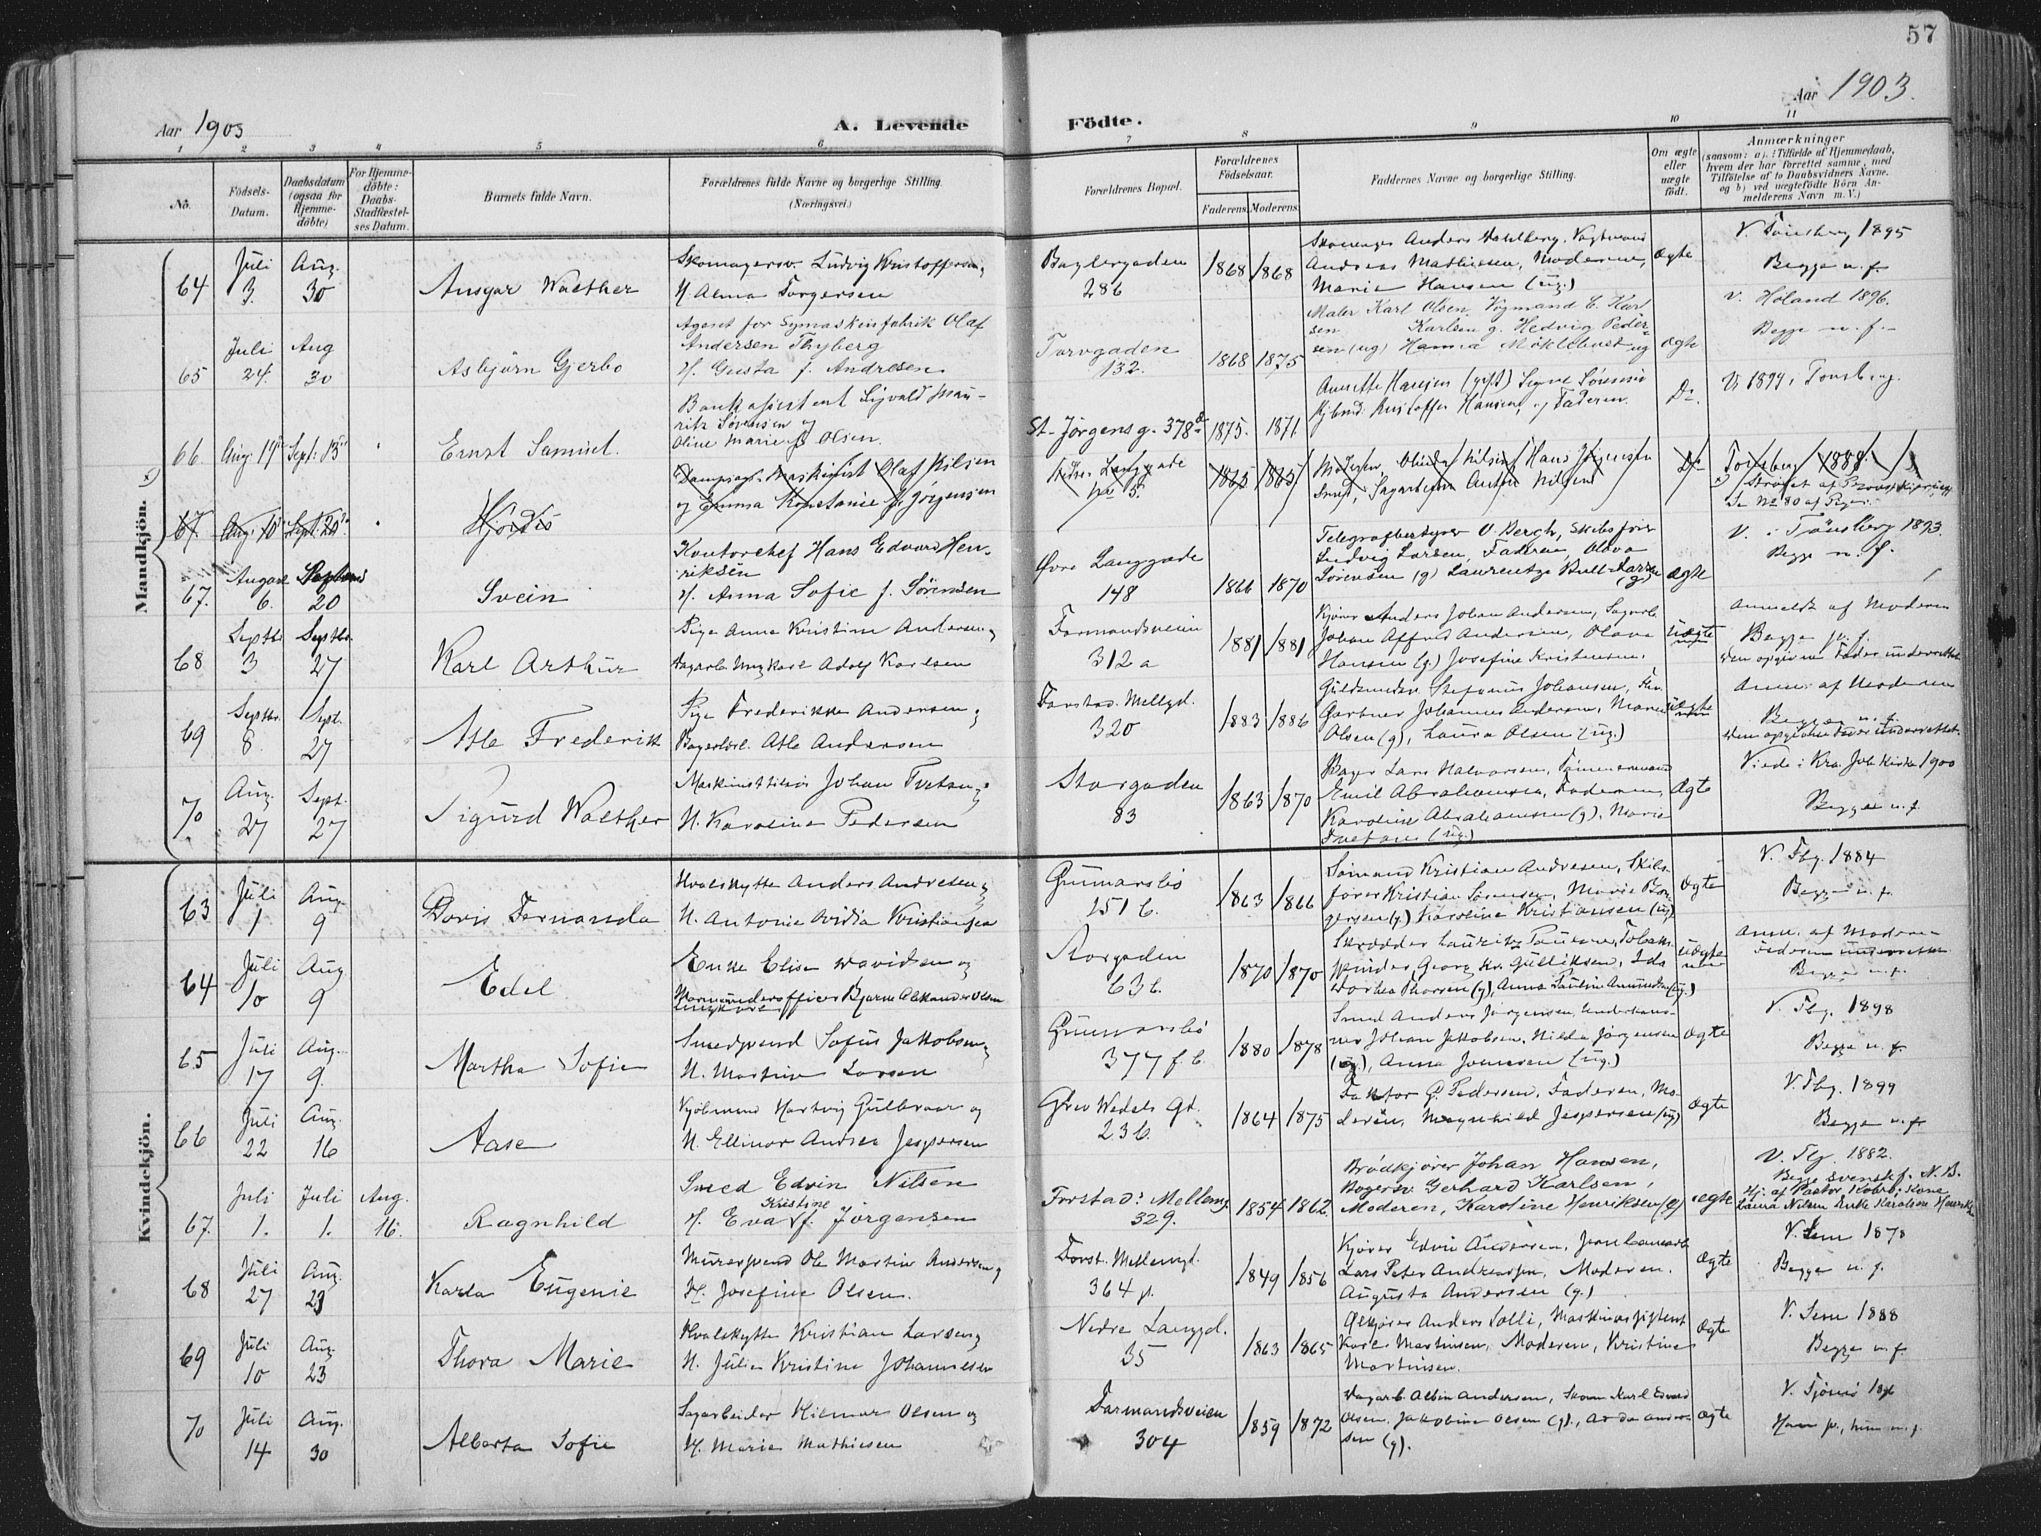 57
Aar 1903
A. Levende Födte.
Aar 1903.
1 2 3 4 5 6 7 8 9 10 11
No.
Födsels-Datum.
Daabsdatum (ogsaa for Hjemme-döbte)
For Hjemme-döbte: Daabs-Stadfæstel-ses Datum.
Barnets fulde Navn.
Forældrenes fulde Navne og borgerlige Stilling.
(Næringsvei.)
Forældrenes Bopæl.
Forældrenes Födselsaar.
Faderens. Moderens.
Faddernes Navne og borgerlige Stilling.
Om ægte eller uægte födt.
Anmærkninger
(saasom: a). i Tilfælde af Hjemmedaab, hvem der har forrettet samme, med Tilföielse af to Daabsvidners Navne, og b) ved uægtefödte Börn An-melderens Navn m. V.)
Mandkjön.
64 Juli 3. Aug. 30 Ansgar Walther
Skomagersv. Ludvig Kristoffersen
H. Alma Torgersen
Baglergaden 286 1868 1868
Andreas Mathiesen, Moderen,
Marie Hansen (ug.)
Ægte
V. Tönsberg 1895
Begge n. f.
65 Juli 24. Aug 30 Asbjörn Gjerbo
Agent for Symaskinfabrik Olaf
Andersen Thyberg
H. Gusta f. Andresen
Torvgaden 132. 1868 1875
Maler Karl Olsen
Karlsen g. Hedvig Peder-
sen (ug)
ægte
V. Holand 1896.
Begge n. f.
66. Aug. 17 Sept. 13 Ernst Samuel.
Bankassistent Sigvald Mau-
ritz Sörensen og
Oline Marie f. Olsen.
St. Jörgensg. 378 1875. 1871
Annette Hansen (gift) Signe Sörensen
Kristoffer Hansen, og Faderen.
Do.
V. 1899 i Tonsberg.
67 Aug. 10 Sept. 20 Hjördis
Dampsags-Maskinist Olaf Nilsen
og Emma Konstanse f. Jörgensen
Nedre Langgade No 5. 1865 1865
Moderen, Olinda Nilsen, Hans Jörgensen
Smed, Sagarbeider Anton Nilsen
Do
Tönsberg 1888.
Se No 80 af Piger.
67. August 6. Septemb 20 Svein
Kontorchef Hans Edvard Hen-
riksen
H. Anna Sofie f. Sörensen
Övre Langgade 148 1866 1870
Telegrafbestyrer O Bergh, Skibsförer
Ludvig Larsen, Faderen, Olava
Sörensen (g) Laurentze Bull-Larsen (g)
Ægte
V. i Tönsberg 1893.
Begge n. f.
68 Septbr 3 Septbr. 27 Karl Arthur
Pige Anna Kristine Andersen og
Dagarb. Ungkarl Adolf Karlsen
Farmandsveien 312 a 1881 1881
Kjörer Anders Johan Andersen, Sagarb.
Johan Alfred Andersen, Olava
Hansen (g.) Josefine Kristensen.
uægte
Anmeldt af Moderen
Den opgivne Fader underrettet
69 Septbr. 8 Sept. 27 Atle Frederik
Pige Frederikke Andersen og
Bagerlærl. Atle Andersen
Forstad. Mellgd. 320 1883 1886
Guldsmedsv. Stefanus Johansen,
Gartner Johannes Andersen, Maren
Olsen (g), Laura Olsen (ug.)
uægte
Anm. af Moderen
Begge n. f.
Den opgivne Fader underrettet.
70 Aug. 27 Sept. 27 Sigurd Walther
Johan Tvetan og
H. Karoline Pedersen
Storgaden 83 1863 1870
Bager Lars Halvorsen, Tömmermand
Emil Abrahamsen, Faderen,
Karoline Abrahamsen (g), Marie
Tvetan (ug.)
Ægte
Viede i Kra. Joh. Kirke 1900
Begge n. f.
Kvindekjön.
63 Juli 1 Aug. 9 Doris Fernanda
Hvalskytte Anders Andresen og
H. Antonie Ovidia Kristiansen
Gunnarsbö 251 b. 1863 1866
Sömand Kristian Andresen, Skibs-
förer Kristian Sörensen, Marie Bor-
gersen (g) Karoline Kristiansen (ug)
Ægte
V. Tbg. 1884
Begge n. f.
64 Juli 10 Aug 9 Edel
Enke Elise Davidsen og
Marineunderofficer Bjarne Alexander Olsen
Ungkarl
Storgaden 63 b. 1870 1870
Skrædder Lauritz Paulsen, Tobaks-
spinder Georg Kr. Gulliksen, Ida
Dorthea Thorsen (g), Anna Pauline Amundsen (ug.)
uægte
Anm. af Moderen
Faderen underrettet
Begge n. f.
65 Juli 17 Aug. 9. Martha Sofie
Smedsvend Sofus Jakobsen og
H. Martine Larsen
Gunnarsbö 377 f. b. 1880 1878
Smed Anders Jörgensen,
Johan Jakobsen, Hilda Jörgensen
(ug.), Anna Joensen (ug.)
Ægte
V. Tbg. 1898
Begge n. f.
66 Juli 22 Aug. 16 Aase
Kjöbmand Hartvig Gulbraar og
H. Ellinor Andrea Jespersen
Grev Wedels Gd. 236. 1864 1875
Faktor P. Pedersen, Faderen, Mo-
deren, Magnhild Jespersen (ug)
Ægte
V. Tbg. 1899
Begge n. f.
67. Juli 1. Juli 1. Aug. 16. Ragnhild
Smed Edvin Nilsen
H. Eva Kristine f. Jörgensen
Forstads Mellemg. 329. 1854 1862.
Brödkjörer Johan Hansen,
Bagersv. Gerhard Karlsen,
Moderen, Karoline Henriksen (g)
ægte
V. Tbg. 1882.
Begge svensk f. N. B.
68 Juli 27 Aug. 23 Karla Eugenie
Murersvend Ole Martin Andersen og
H. Josefine Olsen.
Forst. Mellemgd. 364 1849 1856
Kjörer Edvin Andersen,
Lars Peter Andreassen, Moderen.
Augusta Andersen (g.)
Ægte
V. Sem 1878
Begge n. f.
69 Juli 10 Aug. 23 Thora Marie
Hvalskytte Kristian Larsen og
H. Julie Kristine Johannesen
Nedre Langgd. 35 1863 1865
Anders Solli, Maskinassistent
Karl Martinsen, Moderen, Kristine
Martinsen.
Ægte
V. Sem 1888
Begge n. f.
70 Juli 14 Aug. 30 Alberta Sofie
Sagarbeider Hilmar Olsen og
H. Marie Mathisen
Farmandsveien 304 1859 1872
Dagarb. Albin Andersen, Karl Edvard
Olsen, Jakobine Olsen (g)., Ander-
sen (g).
Ægte
V. Tjömö